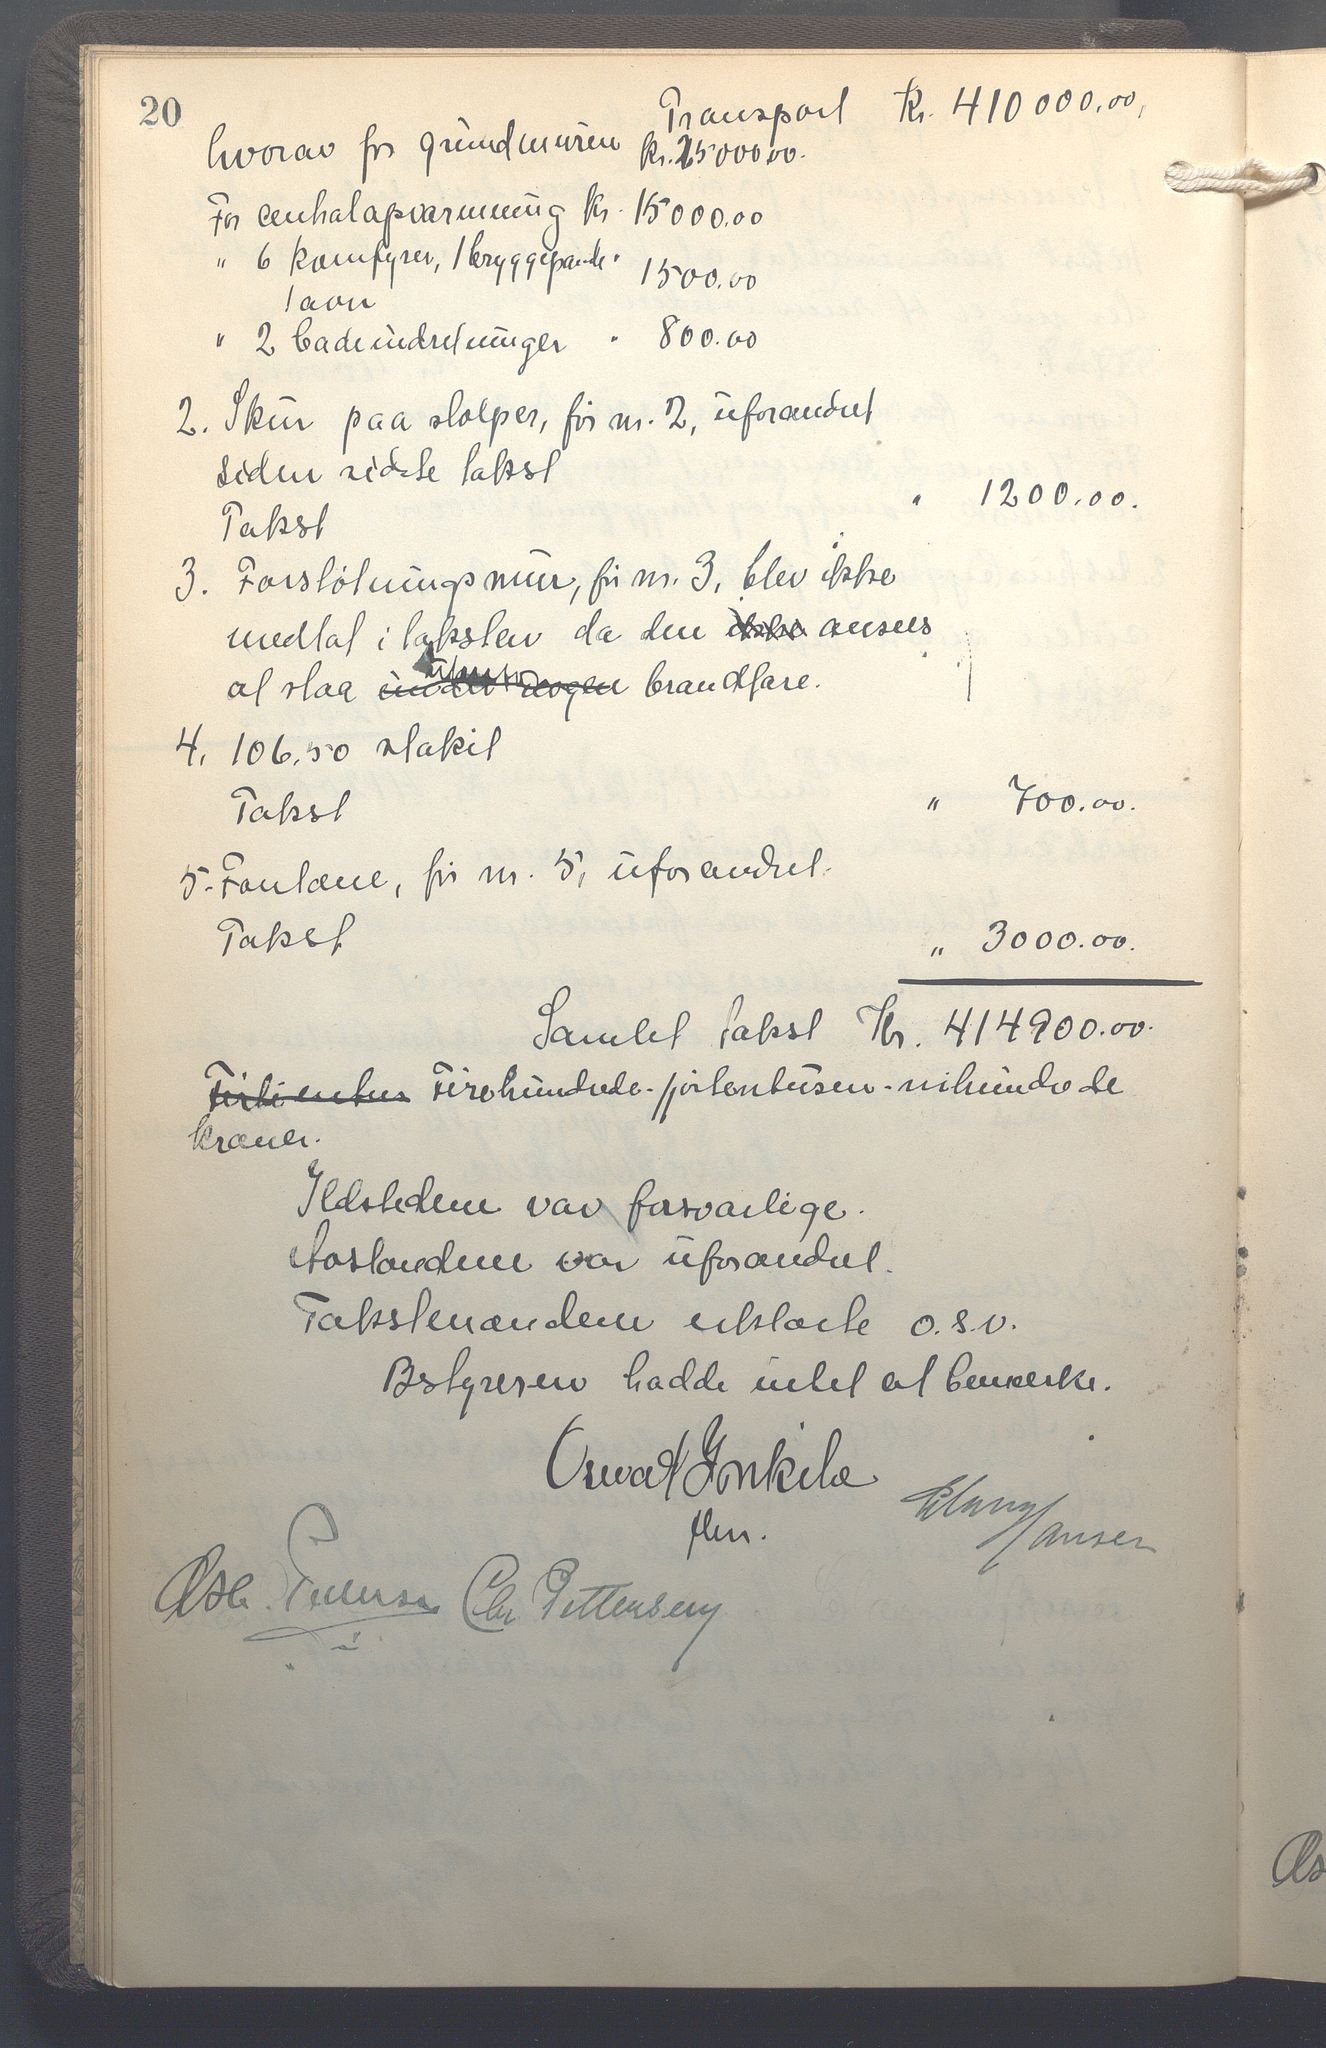 20
Transport Kr. 410000.00.
hvorav for grundmuren kr. 25000.00.
For centralopvarmning kr. 15000.00
" 6 komfyrer, 1 bryggepande " 1500.00
1 ovn
" 2 badeindretninger " 800.00
2. Skur paa stolper, før nr. 2, uforandret
siden sidste takst
Takst " 1200.00.
3. Forstøtningsmur, før nr. 3, blev ikke
medtat i taksten da den ikke ansees
at staa under nogen brandfare.
4. 106,50 stakit
Takst " 700.00.
5. Fontæne, før nr. 5, uforandret.
Takst " 3000.00.
Samlet takst Kr. 414900.00.
Firehundrede-fjortentusen-nihundrede
kroner.
Ildstedene var forsvarlige.
Avstandene var uforandret.
Takstmændene erklærte o.s.v.
Bestyreren hadde intet at bemerke.
Osvald
fm.
Hansen
Osc. Pedersen Chr Pettersen